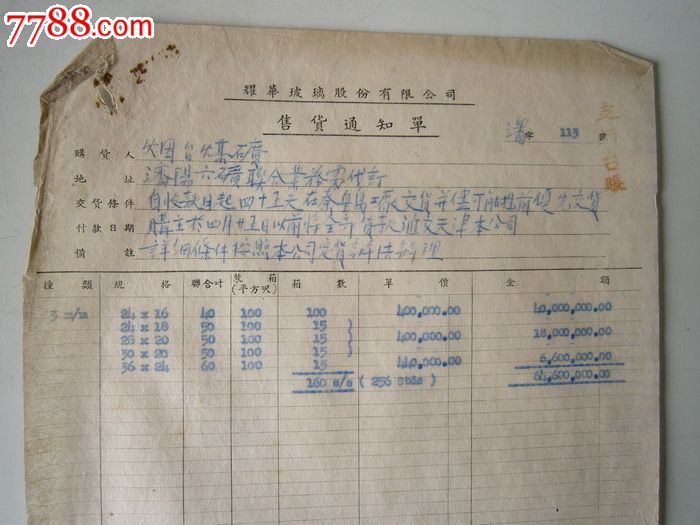 7788.com
耀華玻璃股份有限公司
售貨通知單
瀋字 113 號
購貨人 台煤礦
地址 瀋陽六礦聯合業務處代訂
交貨條件 自收款日起四十五天在秦皇島工廠交貨並儘可能提前優先交貨
付款日期 購主於四月廿五日以前將全部貨款滙交天津本公司
備註 詳細條件按照本公司定貨辦法辦理
種類 規格 聯合吋 每箱(平方呎) 箱數 單價 金額
3 m/m 24 x 16 40 100 100 400,000.00 40,000,000.00
24 x 18 50 100 15
28 x 20 50 100 15 } 400,000.00 18,000,000.00
30 x 20 50 100 15
36 x 24 60 100 15 440,000.00 6,600,000.00
160 c/s ( 256 Stds ) 64,600,000.00
台賬